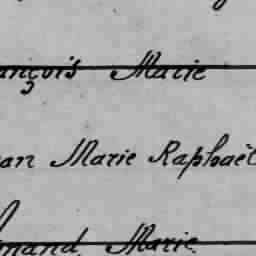 ançois Marie
an Marie Raphaël
mand Marie